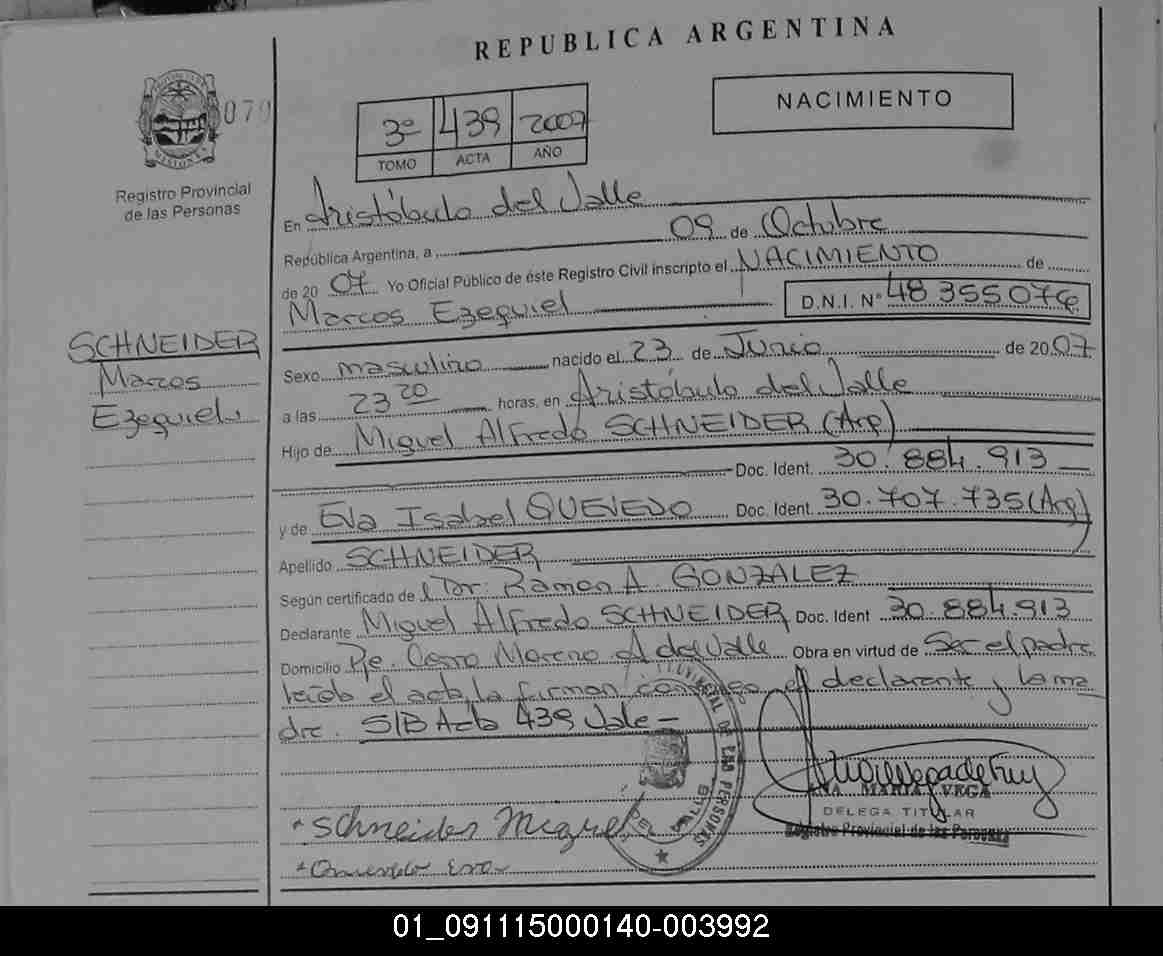 REPUBLICA ARGENTINA
NACIMIENTO
079
3º 439 2007
TOMO ACTA AÑO
MISIONES
Registro Provincial
de las Personas
En Aristóbulo del Valle
República Argentina, a 09 de Octubre
de 20 07 Yo Oficial Público de éste Registro Civil inscripto el NACIMIENTO de
Marcos Ezequiel D.N.I. Nº 48 355 076
SCHNEIDER
Marcos
Ezequiel
Sexo masculino nacido el 23 de Junio de 20 07
a las 23 20 horas, en Aristóbulo del Valle
Hijo de Miguel Alfredo SCHNEIDER (Arg)
Doc. Ident. 30.884.913
y de Eva Isabel QUEVEDO Doc. Ident. 30.707.735 (Arg)
Apellido SCHNEIDER
Según certificado de Dr. Ramon A. GONZALEZ
Declarante Miguel Alfredo SCHNEIDER Doc. Ident 30.884.913
Domicilio Pje. Cerro Moreno A del Valle Obra en virtud de Ser el padre
leida el acta, la firman conmigo, el declarante y la ma
dre. S/B Acta 439 Vale -
ANA MARIA VEGA
DELEGA TITULAR
Registro Provincial de las Personas
PROVINCIAL DE LAS PERSONAS
Schneider Miguel
01_091115000140-003992